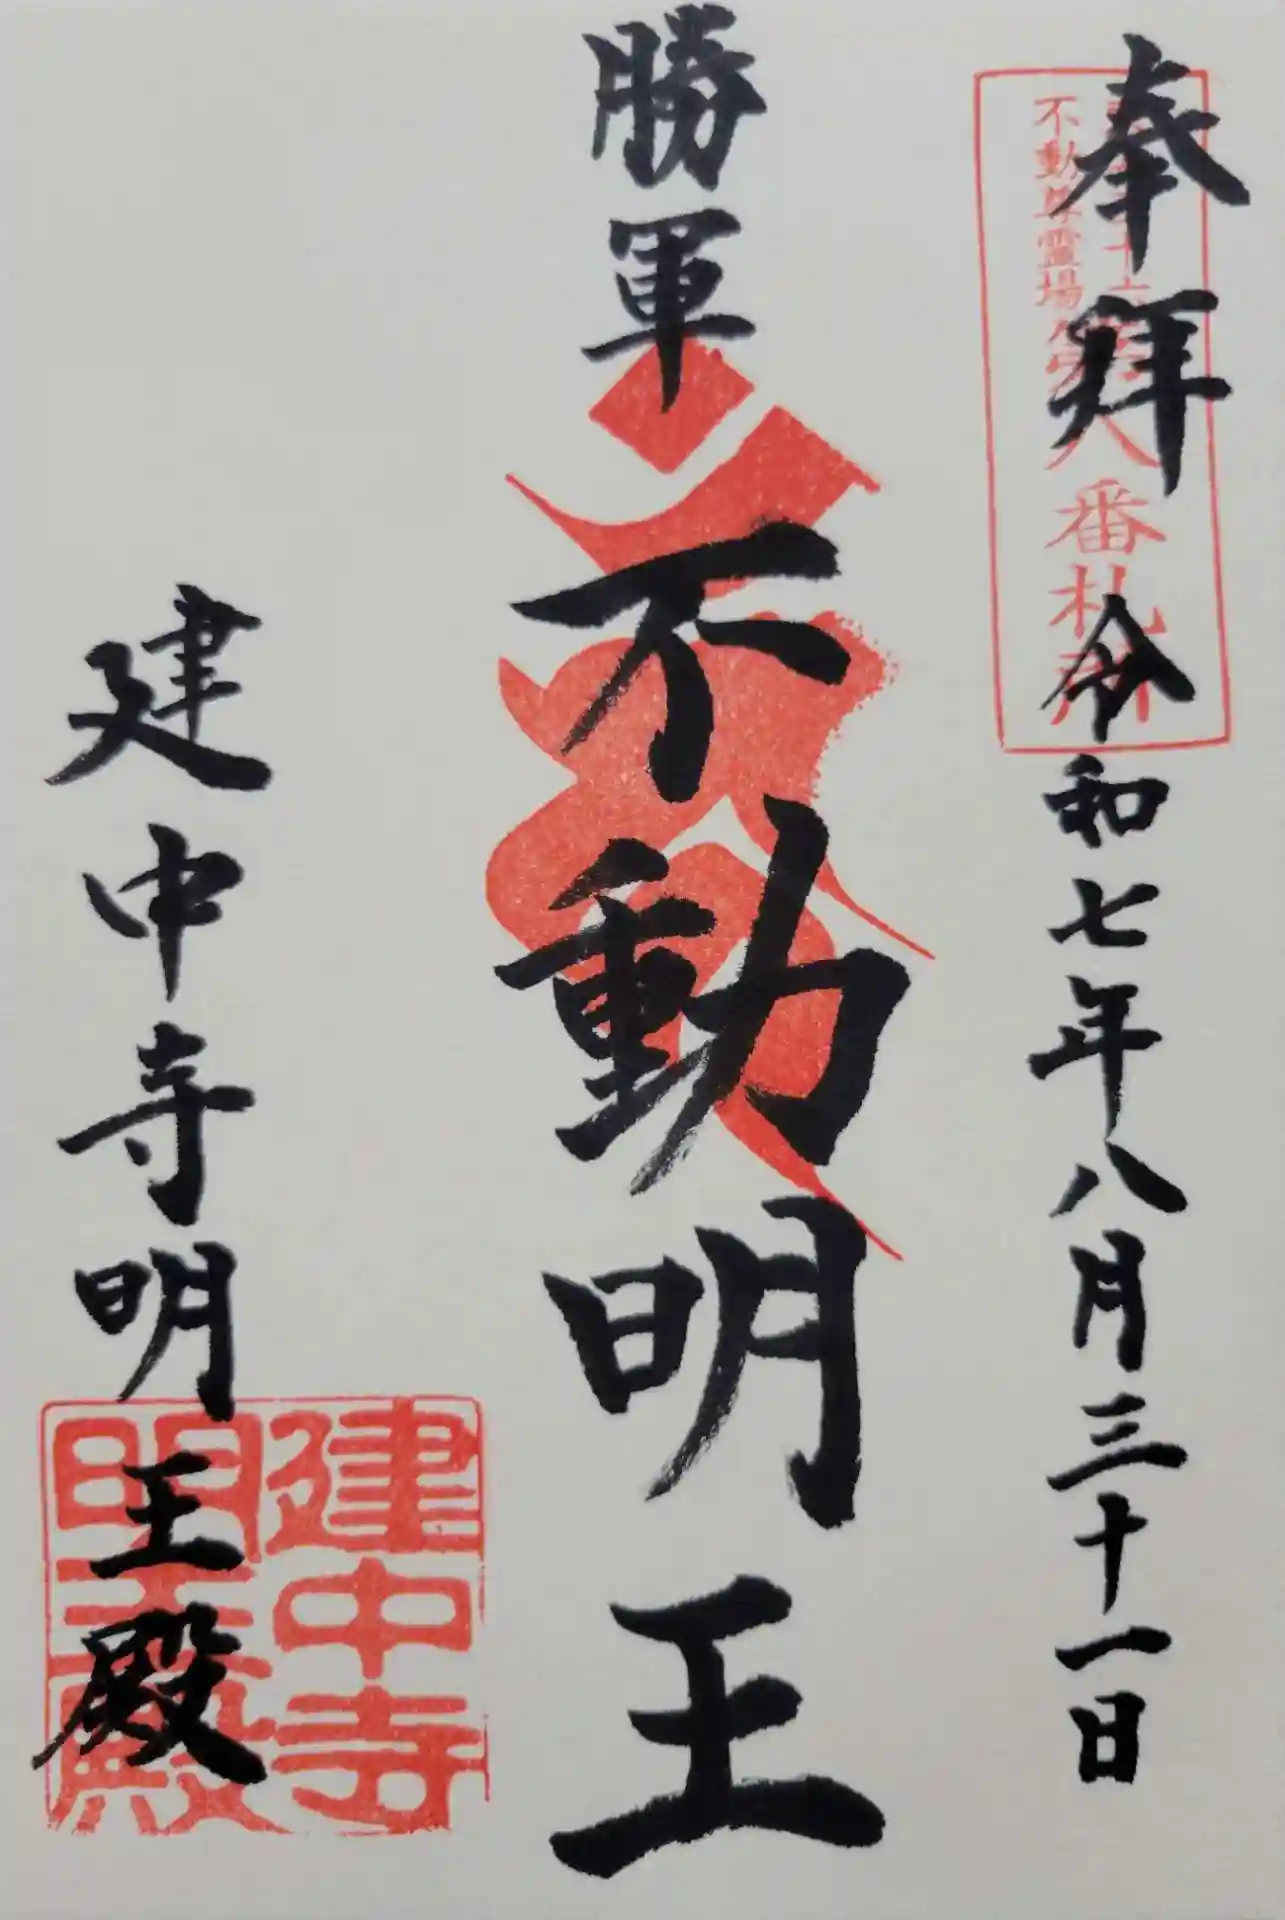 奉拝 令和七年八月三十一日
不動尊霊場
番札所
勝軍 不動明王
建中寺明王殿
建中寺
明王殿